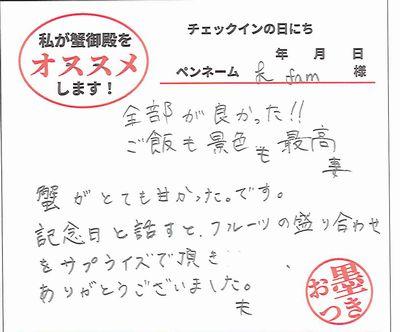 私が蟹御殿を
オススメ
します！
チェックインの日にち
年 月 日
ペンネーム k fam 様
全部が良かった!!
ご飯も景色も最高
妻
蟹がとても甘かった。です。
記念日と話すと、フルーツの盛り合わせ
をサプライズで頂き…
ありがとうございました。
夫
お墨つき